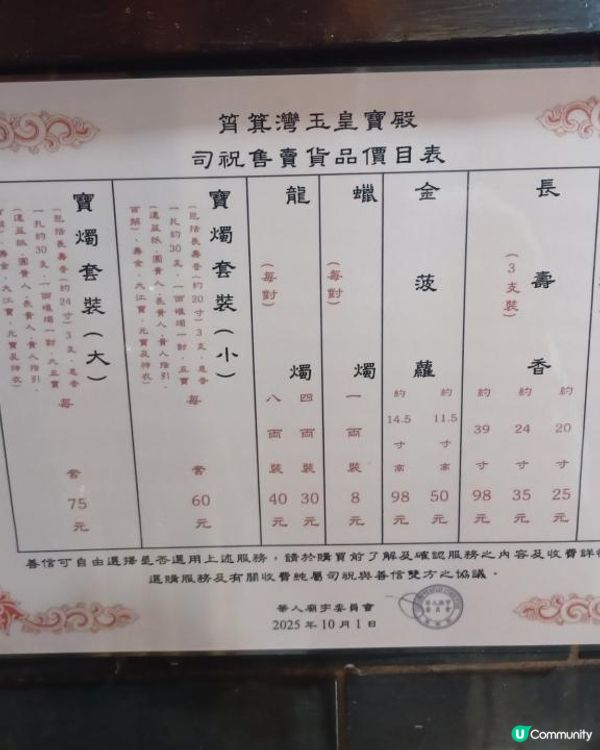 筲箕灣玉皇寶殿
司祝售賣貨品價目表
長壽香
(3支裝)
約20寸 25元
約24寸 35元
約39寸 98元
金菠蘿
約11.5寸高 50元
約14.5寸高 98元
蠟燭
(每對)
一両裝 8元
龍燭
(每對)
四両裝 30元
八両裝 40元
寶燭套裝(小)
(包括長壽香(約20寸)3支、息香
一扎約30支、一両蠟燭一對、五寶
每套 60元
寶燭套裝(大)
(包括長壽香(約24寸)3支、息香
一扎約30支、一両蠟燭一對、大五寶
每套 75元
善信可自由選擇是否選用上述服務。請於購買前了解及確認服務之內容及收費詳
選購服務及有關收費純屬司祝與善信雙方之協議。
華人廟宇委員會
2025年10月1日
U Community